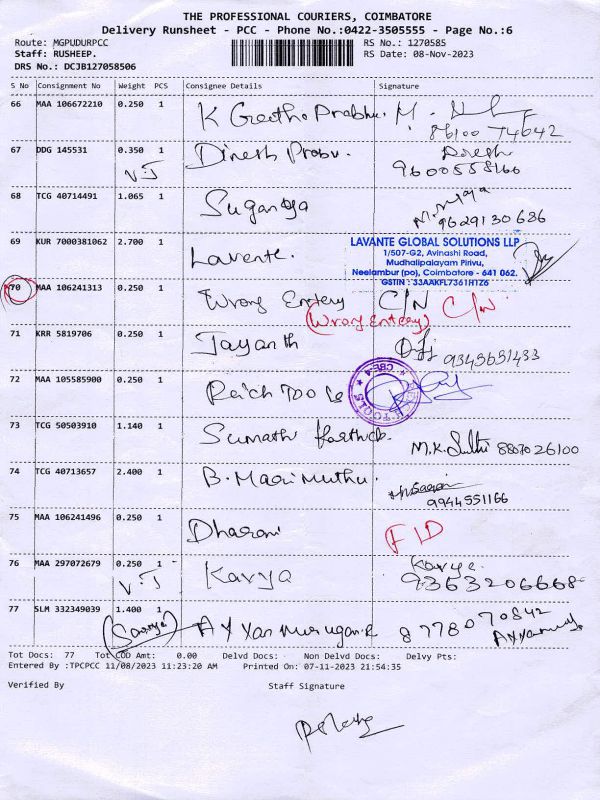 THE PROFESSIONAL COURIERS, COIMBATORE
Delivery Runsheet - PCC - Phone No.:0422-3505555 - Page No.:6
Route: MGPUDURPCC
Staff: RUSHEEP.
DRS No.: DCJB127058506
RS No.: 1270585
RS Date: 08-Nov-2023
S No Consignment No Weight PCS Consignee Details Signature
66 MAA 106672210 0.250 1 K Geetha Prabhu. M.
86100 74642
67 DDG 145531 0.350 1 Dinesh Prabu. Dinesh
V.J 9600558166
68 TCG 40714491 1.065 1 Suganya
9629130686
69 KUR 7000381062 2.700 1 Lavente.
LAVANTE GLOBAL SOLUTIONS LLP
1/507-G2, Avinashi Road,
Mudhalipalayam Pirivu,
Neelambur (po), Coimbatore - 641 062.
GSTIN : 33AAKFL7361H1Z6
70 MAA 106241313 0.250 1 Wrong Entery C/N C/N
(Wrong Entery)
71 KRR 5819706 0.250 1 Jayanth
9345651433
72 MAA 105585900 0.250 1 Reich Tools
TOOLS
CBE-4
73 TCG 50503910 1.140 1 Sumathi Karthick. M.K. 8807026100
74 TCG 40713657 2.400 1 B. Marimuthu.
9944551166
75 MAA 106241496 0.250 1 Dharani F I D
76 MAA 297072679 0.250 1 Kavya Kavya.
V.J 9363206668
77 SLM 332349039 1.400 1 Ayyanmurugan.R 8778070842
(Saanya)
Tot Docs: 77 Tot COD Amt: 0.00 Delvd Docs: Non Delvd Docs: Delvy Pts:
Entered By :TPCPCC 11/08/2023 11:23:20 AM Printed On: 07-11-2023 21:54:35
Verified By Staff Signature